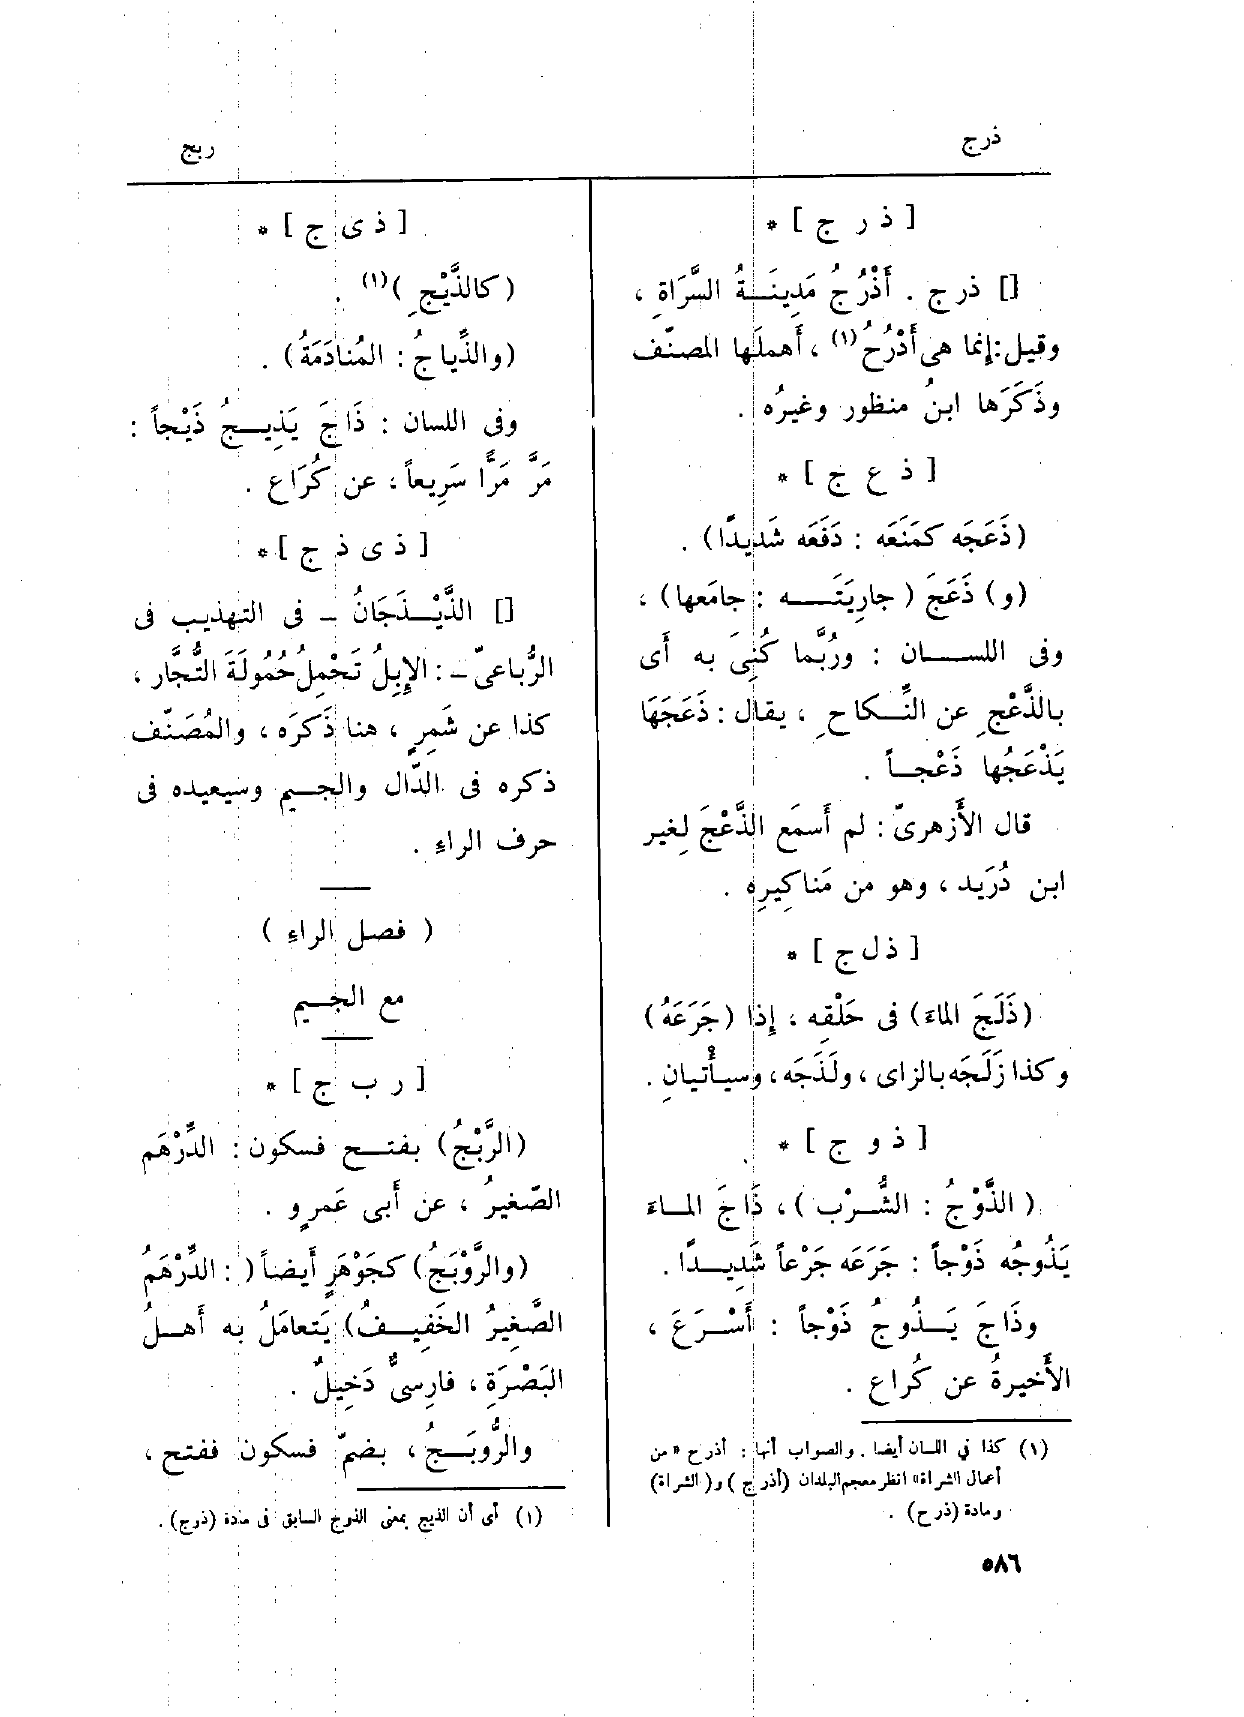 ذرج
ربج
[ ذ ر ج ] *
[] ذرج . أَذْرُجُ مَدِينَـةُ السَّرَاةِ ،
وقيل: إنما هى أَذْرُحُ (١) ، أَهملَها المصنّف
وذَكَرَها ابنُ منظور وغيرُه .
[ ذ ع ج ] *
(ذَعَجَه كمَنَعَه : دَفَعَه شَديدًا) .
(و) ذَعَجَ ( جارِيَتَــه : جامَعها) ،
وفى اللســان : ورُبَّما كُنِىَ به أَى
بالذَّعْجِ عن النِّـكاحِ ، يقال : ذَعَجَهَا
يَذْعَجُها ذَعْجـاً .
قال الأَزهرىّ : لم أَسمَع الذَّعْجَ لِغير
ابن دُرَيد ، وهو من مَناكِيرِه .
[ ذ ل ج ] *
(ذَلَجَ الماءَ) فى حَلْقِه ، إِذا (جَرَعَهُ)
وكذا زَلَجَه بالزاى ، ولَذَجَه، وسيأْتيانِ .
[ ذ و ج ] *
( الذَّوْجُ : الشُّـرْب ) ، ذَاجَ المـاءَ
يَذُوجُه ذَوْجاً : جَرَعَه جَرْعاً شَدِيـدًا .
وذَاجَ يَـذُوجُ ذَوْجاً : أَسْـرَعَ ،
الأَخيرةُ عن كُراع .
(١) كذا فى اللسان أيضا . والصواب أنها : أذرح « من
أعمال الشراة» انظر معجم البلدان (أذرج ) و ( الشراة)
ومادة (ذرح) .
[ ذ ى ج ] *
( كالذَّيْجِ ) (١) .
(والذِّياجُ : المُنادَمَةُ) .
وفى اللسان : ذَاجَ يَذِيـجُ ذَيْجاً :
مَرَّ مَرًّا سَرِيعاً ، عن كُرَاع .
[ ذ ى ذ ج ] *
[] الذَّيْـذَجَانُ – فى التهذيب فى
الرُّباعىّ – : الإِبِلُ تَحْمِلُ حُمُولَةَ التُّجَّار ،
كذا عن شَمِرٍ ، هنا ذَكَرَه ، والمُصَنّف
ذكره فى الدّال والجـيم وسيعيده فى
حرف الراءِ .
( فصل الراءِ )
مع الجـيم
[ ر ب ج ] *
(الرَّبْجُ) بفتـح فسكون : الدِّرْهَم
الصّغيرُ ، عن أَبى عَمرٍو .
(والرَّوْبَجُ) كجَوْهَرٍ أَيضاً ( : الدِّرْهَمُ
الصَّغِيرُ الخَفِيـفُ) يَتعامَلُ به أَهـلُ
البَصْرَةِ ، فارِسىٌّ دَخِيلٌ .
والرُّوبَـجُ ، بضمّ فسكون ففتح ،
(١) أى أن الذيج بمعنى الذوج السابق فى مادة (ذوج) .
٥٨٦